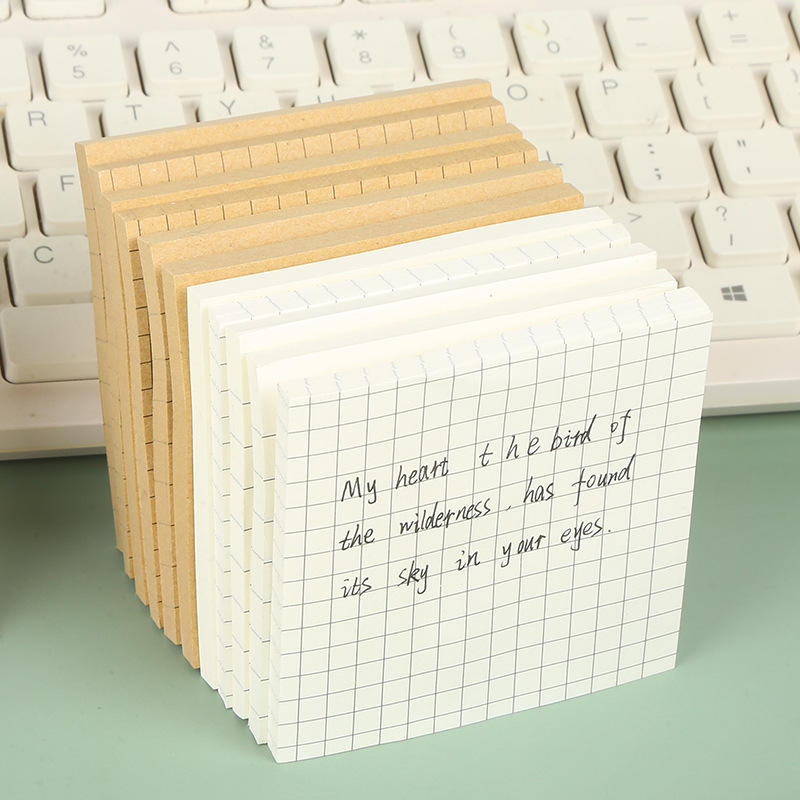 % 5
^ 6
& 7
* 8
( 9
) 0
- _
+ =
R
T
Y
U
O
P
{ [
F
L
: ;
" '
C
>
? /
My heart the bird of
the wilderness, has found
its sky in your eyes.